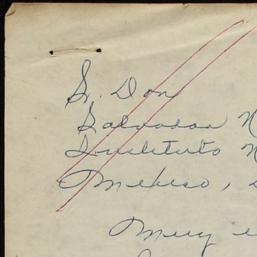 Sr. Don
Salvador N
Instituto N
Mexico,
Muy e